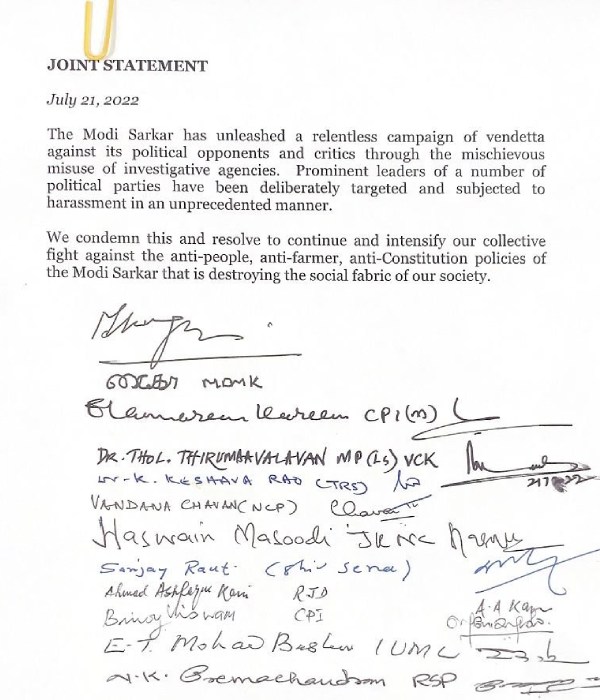 JOINT STATEMENT
July 21, 2022
The Modi Sarkar has unleashed a relentless campaign of vendetta
against its political opponents and critics through the mischievous
misuse of investigative agencies. Prominent leaders of a number of
political parties have been deliberately targeted and subjected to
harassment in an unprecedented manner.
We condemn this and resolve to continue and intensify our collective
fight against the anti-people, anti-farmer, anti-Constitution policies of
the Modi Sarkar that is destroying the social fabric of our society.
MDMK
Elamaram Kareem CPI(M)
DR. THOL. THIRUMAAVALAVAN MP (LS) VCK
K. KESHAVA RAO (TRS) 21722
VANDANA CHAVAN (NCP) Chavan
Hasnain Masoodi JKNC
Sanjay Raut (Shiv Sena)
Ahmad Ashfaque Karim RJD A.A Karim
Binoy Viswam CPI
E.T. Mohad Basheer IUML
N.K. Premachandran RSP